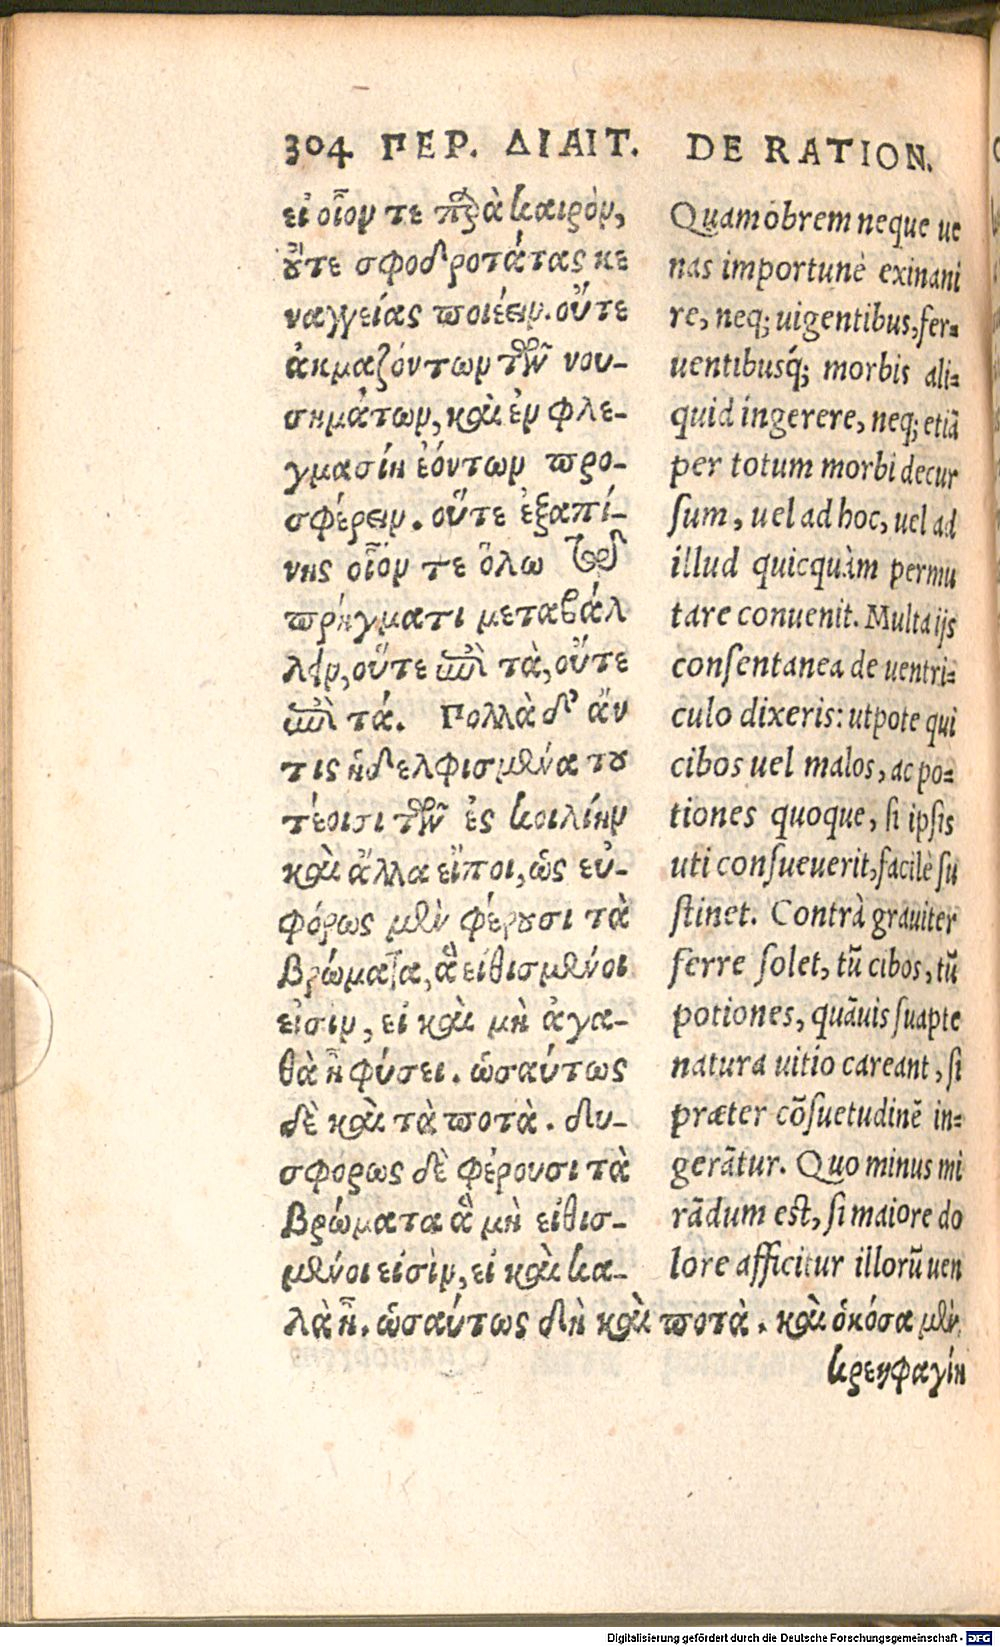 304 ΠΕΡ. ΔΙΑΙΤ. DE RATION.
εἰ οἷον τε παρὰ καιρὸν,
οὔτε σφοδροτάτας κε
ναγγείας ποιέειν. οὔτε
ἀκμαζόντων τῶν νου-
σημάτων, καὶ ἐν φλε-
γμασίῃ ἐόντων προ-
σφέρειν. οὔτε ἐξαπί-
νης οἷον τε ὅλω τῷ
πρήγματι μεταβάλ
λειν, οὔτε ἐπὶ τὰ, οὔτε
ἐπὶ τά. Πολλὰ δ' ἄν
τις ἠδελφισμένα του
τέοισι τῶν ἐς κοιλίην
καὶ ἄλλα εἴποι, ὡς εὐ-
φόρως μὲν φέρουσι τὰ
βρώματα, ἃ εἰθισμένοι
εἰσὶν, εἰ καὶ μὴ ἀγα-
θὰ ᾖ φύσει. ὡσαύτως
δὲ καὶ τὰ ποτὰ. δυ-
σφόρως δὲ φέρουσι τὰ
βρώματα ἃ μὴ εἰθισ-
μένοι εἰσὶν, εἰ καὶ κα-
λὰ ᾖ. ὡσαύτως δὴ καὶ ποτὰ. καὶ ὁκόσα μὲν
κρεηφαγίη
Quamobrem neque ue
nas importunè exinani
re, neq; uigentibus, fer-
uentibusq́; morbis ali-
quid ingerere, neq; etiā
per totum morbi decur
sum, uel ad hoc, uel ad
illud quicquàm permu
tare conuenit. Multa ijs
consentanea de uentri-
culo dixeris: utpote qui
cibos uel malos, ac po-
tiones quoque, si ipsis
uti consueuerit, facilè su
stinet. Contrà grauiter
ferre solet, tū cibos, tū
potiones, quāuis suapte
natura uitio careant, si
præter cōsuetudinē in-
gerātur. Quo minus mi
rādum est, si maiore do
lore afficitur illorū uen
Digitalisierung gefördert durch die Deutsche Forschungsgemeinschaft - DFG